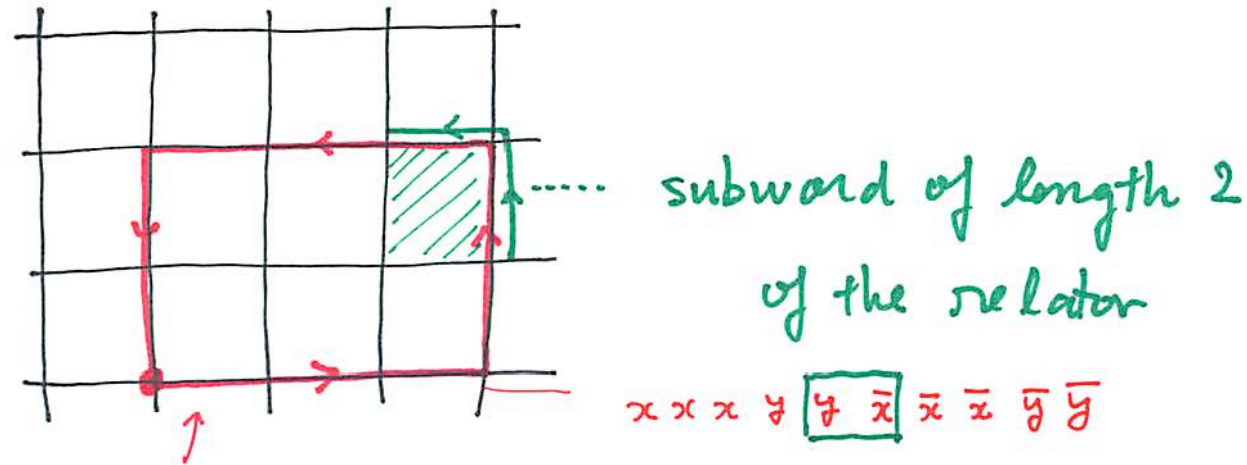 subword of length 2
of the relator
x x x y y x̄ x̄ x̄ ȳ ȳ